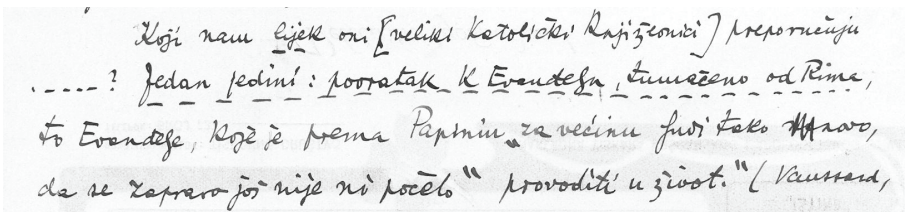 Koji nam lijek oni [veliki Katolički Književnici] preporučuju
.....? Jedan jedini: povratak K Evanđelju, tumačeno od Rima,
to Evanđelje, koje je prema Papiniu „za većinu ljudi tako novo,
da se zapravo još nije ni počelo“ provoditi u život.“ (Vaussard,